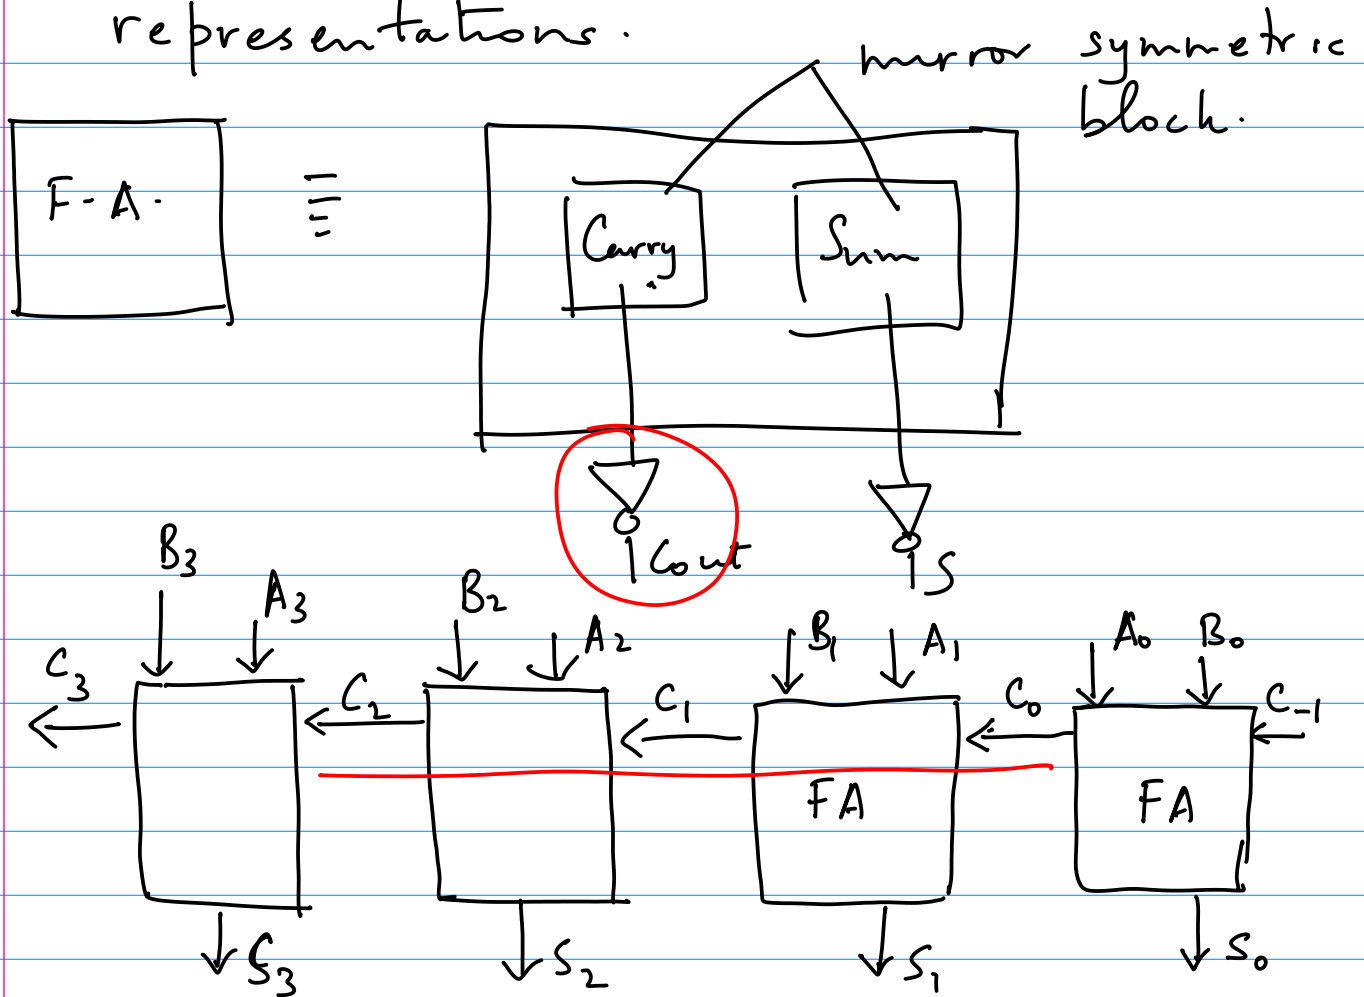 representations.
mirror symmetric
block.
F.A. ≡
Carry Sum
Cout S
B3 A3 B2 A2 B1 A1 A0 B0
C3 C2 C1 C0 C-1
FA FA
S3 S2 S1 S0